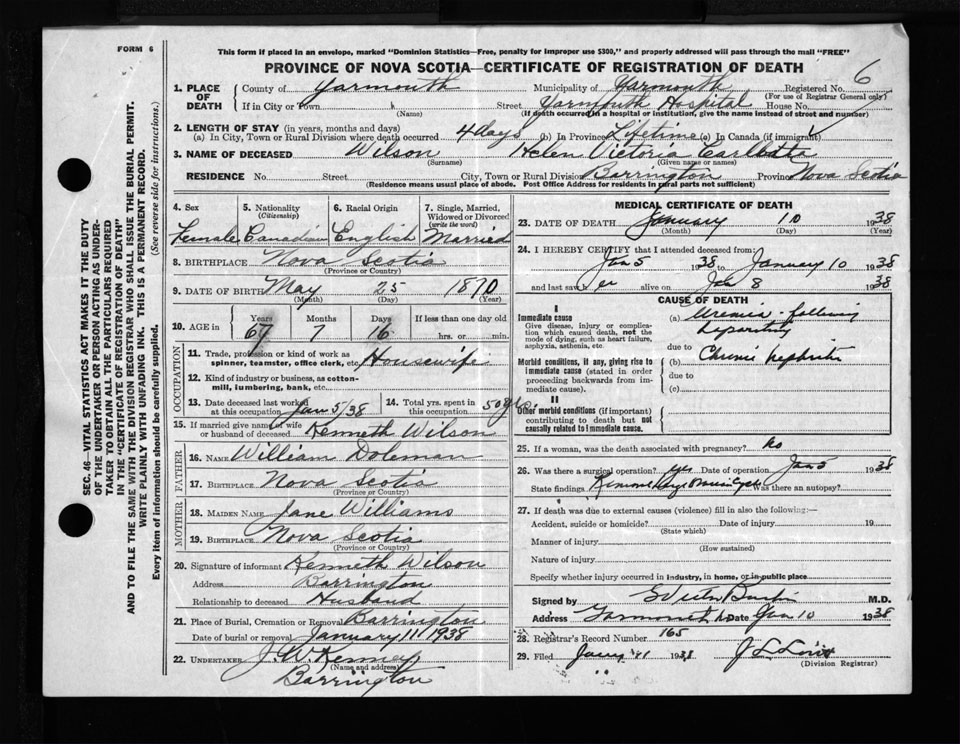 FORM 6
This form if placed in an envelope, marked "Dominion Statistics—Free, penalty for improper use $300," and properly addressed will pass through the mail "FREE"
PROVINCE OF NOVA SCOTIA—CERTIFICATE OF REGISTRATION OF DEATH
6
SEC. 46—VITAL STATISTICS ACT MAKES IT THE DUTY
OF THE UNDERTAKER OR PERSON ACTING AS UNDER-
TAKER TO OBTAIN ALL THE PARTICULARS REQUIRED
IN THE "CERTIFICATE OF REGISTRATION OF DEATH"
AND TO FILE THE SAME WITH THE DIVISION REGISTRAR WHO SHALL ISSUE THE BURIAL PERMIT.
WRITE PLAINLY WITH UNFADING INK. THIS IS A PERMANENT RECORD.
Every item of information should be carefully supplied. (See reverse side for instructions.)
1. PLACE OF DEATH County of Yarmouth Municipality of Yarmouth Registered No.
(For use of Registrar General only)
If in City or Town Street Yarmouth Hospital House No.
(Name) (If death occurred in a hospital or institution, give the name instead of street and number)
2. LENGTH OF STAY (in years, months and days)
(a) In City, Town or Rural Division where death occurred 4 days (b) In Province Lifetime (c) In Canada (if immigrant)
3. NAME OF DECEASED Wilson Helen Victoria
(Surname) (Given name or names)
RESIDENCE No. Street City, Town or Rural Division Barrington Province Nova Scotia
(Residence means usual place of abode. Post Office Address for residents in rural parts not sufficient)
4. Sex Female
5. Nationality (Citizenship) Canadian
6. Racial Origin English
7. Single, Married, Widowed or Divorced (write the word) Married
8. BIRTHPLACE Nova Scotia
(Province or Country)
9. DATE OF BIRTH May 25 1870
(Month) (Day) (Year)
10. AGE in Years Months Days If less than one day old
67 7 16 hrs. or min.
OCCUPATION
11. Trade, profession or kind of work as spinner, teamster, office clerk, etc. Housewife
12. Kind of industry or business, as cotton-mill, lumbering, bank, etc.
13. Date deceased last worked at this occupation Jan 5/38
14. Total yrs. spent in this occupation 50 yrs.
15. If married give name of wife or husband of deceased Kenneth Wilson
FATHER
16. NAME William Doleman
17. BIRTHPLACE Nova Scotia
(Province or Country)
MOTHER
18. MAIDEN NAME Jane Williams
19. BIRTHPLACE Nova Scotia
(Province or Country)
20. Signature of informant Kenneth Wilson
Address Barrington
Relationship to deceased Husband
21. Place of Burial, Cremation or Removal Barrington
Date of burial or removal January 11/1938
22. UNDERTAKER J. W. Kenney
(Name and address)
Barrington
MEDICAL CERTIFICATE OF DEATH
23. DATE OF DEATH January 10 1938
(Month) (Day) (Year)
24. I HEREBY CERTIFY that I attended deceased from:
Jan 5 1938 to January 10 1938
and last saw her alive on Jan 8 1938
CAUSE OF DEATH
I
Immediate cause
Give disease, injury or complication which caused death, not the mode of dying, such as heart failure, asphyxia, asthenia, etc.
(a) Uremia - following
due to
Morbid conditions, if any, giving rise to immediate cause (stated in order proceeding backwards from immediate cause).
(b) Chronic nephritis
due to
(c)
II
Other morbid conditions (if important) contributing to death but not causally related to immediate cause.
25. If a woman, was the death associated with pregnancy? No
26. Was there a surgical operation? yes Date of operation Jan 5 1938
State findings Was there an autopsy?
27. If death was due to external causes (violence) fill in also the following:—
Accident, suicide or homicide? Date of injury 19
(State which)
Manner of injury
(How sustained)
Nature of injury
Specify whether injury occurred in industry, in home, or in public place
Signed by M.D.
Address Yarmouth Date Jan 10 1938
28. Registrar's Record Number 165
29. Filed 11 1938
(Division Registrar)